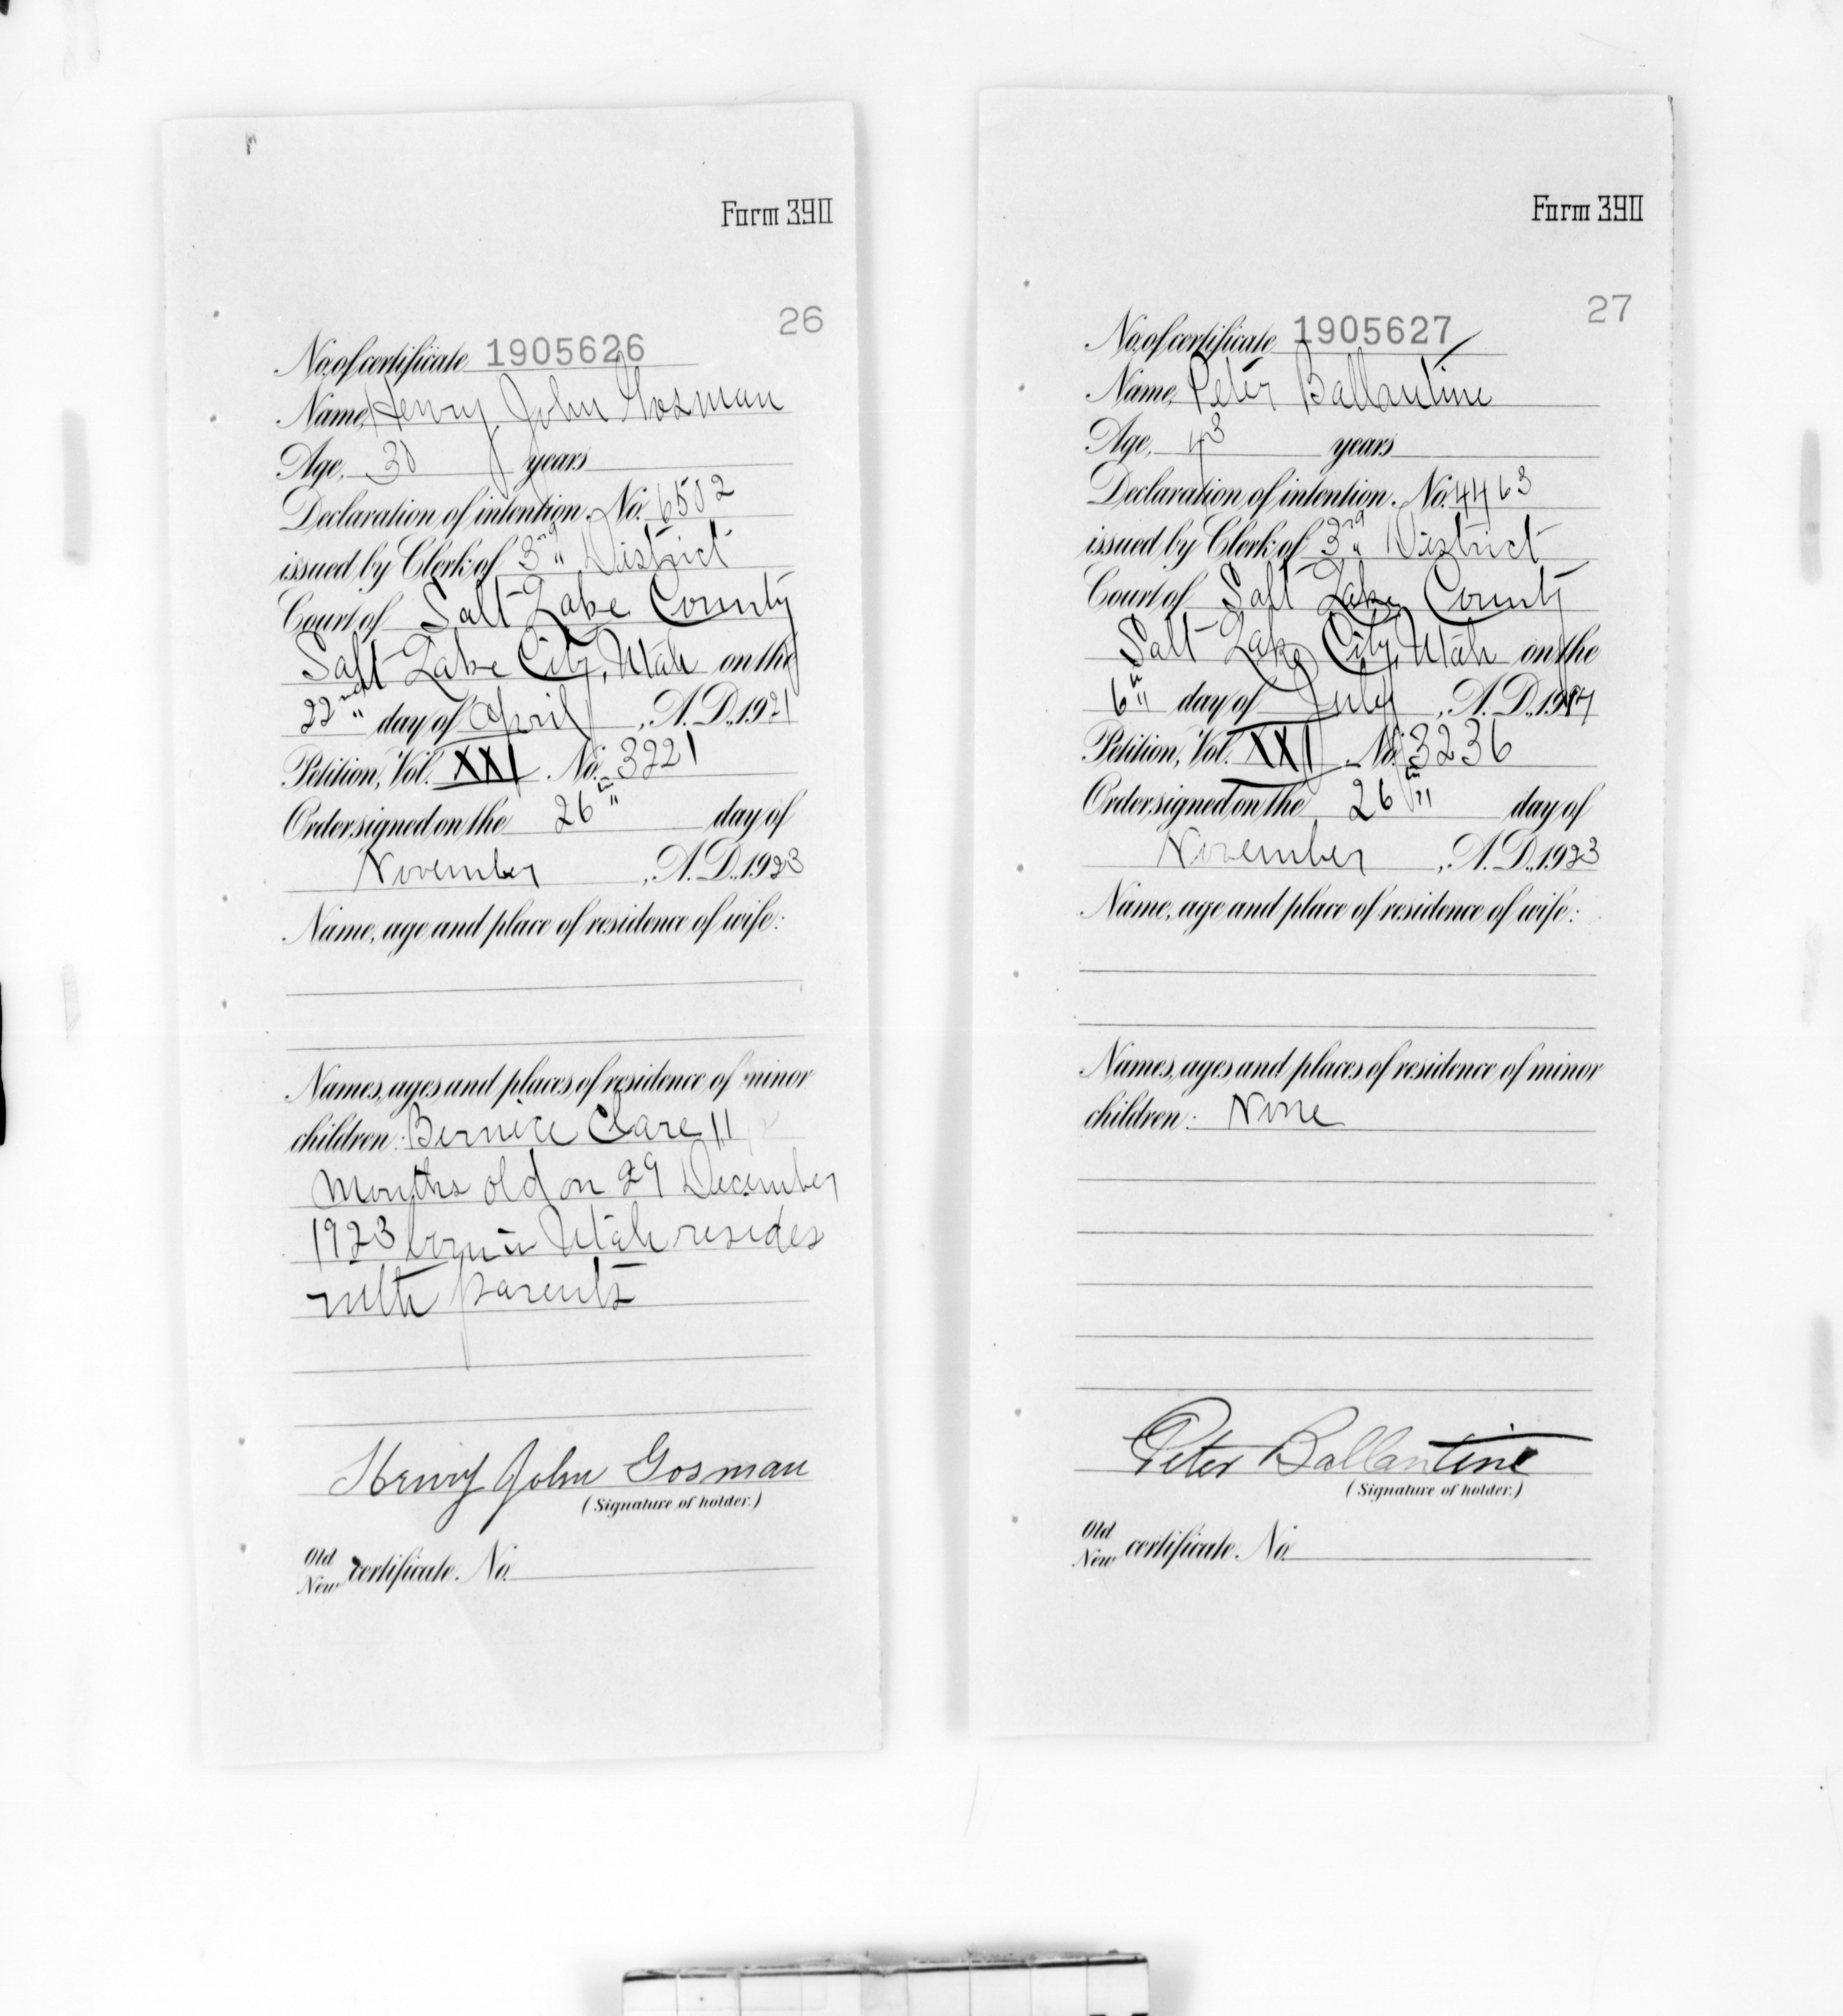 Form 390
26
No. of certificate 1905626
Name, Henry John Gosman
Age, 30 years
Declaration of intention, No. 6502
issued by Clerk of 3rd District
Court of Salt Lake County
Salt Lake City, Utah on the
22nd day of April, A. D., 1921
Petition, Vol. XXI No. 3221
Order signed on the 26th day of
November, A. D., 1923
Name, age and place of residence of wife:
Names, ages and places of residence of minor
children: Bernice Clare 11
months old on 29 December
1923 born in Utah resides
with parents
Henry John Gosman
(Signature of holder.)
Old
New certificate No.
Form 390
27
No. of certificate 1905627
Name, Peter Ballantine
Age, 43 years
Declaration of intention, No. 4463
issued by Clerk of 3rd District
Court of Salt Lake County
Salt Lake City, Utah on the
6th day of July, A. D., 1917
Petition, Vol. XXI No. 3236
Order signed on the 26th day of
November, A. D., 1923
Name, age and place of residence of wife:
Names, ages and places of residence of minor
children: None
Peter Ballantine
(Signature of holder.)
Old
New certificate No.